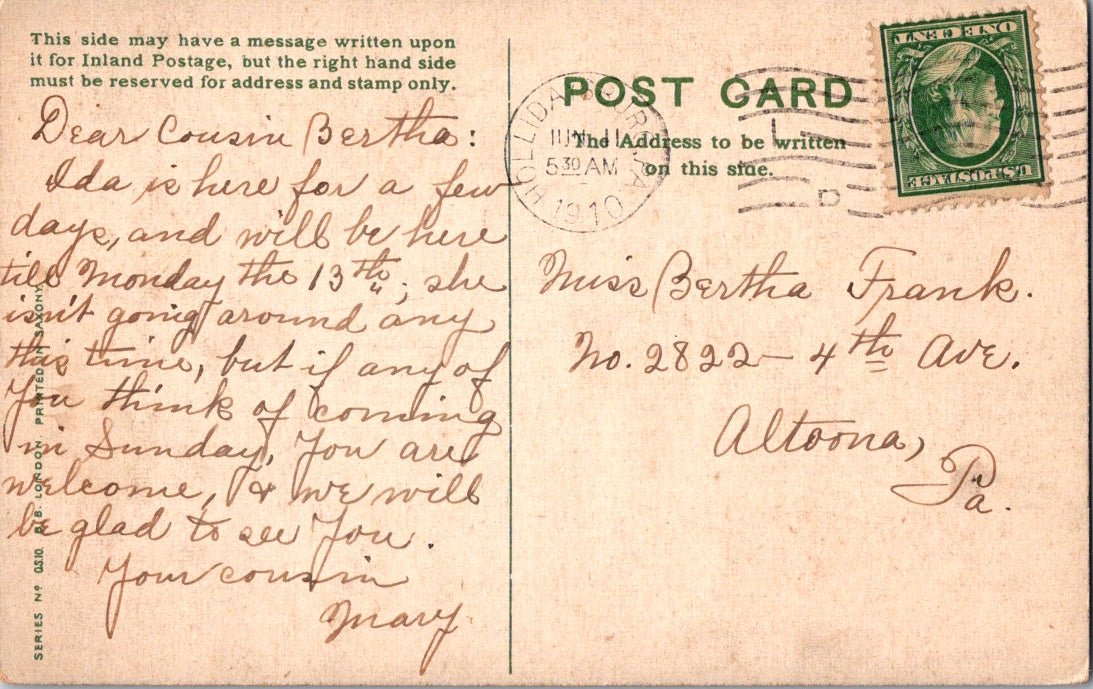 This side may have a message written upon
it for Inland Postage, but the right hand side
must be reserved for address and stamp only.
Dear Cousin Bertha:
Ida is here for a few
days, and will be here
till Monday the 13th; she
isn't going around any
this time, but if any of
You think of coming
in Sunday, You are
welcome, & we will
be glad to see You.
Your cousin
Mary
SERIES No OS.10. B.B. LONDON. PRINTED IN SAXONY
POST CARD
The Address to be written
on this side.
HOLLIDAYSBURG, PA
JUN 11
5 30 AM
1910
ONE CENT
U.S. POSTAGE
Miss Bertha Frank.
No. 2822 - 4th Ave.
Altoona,
Pa.